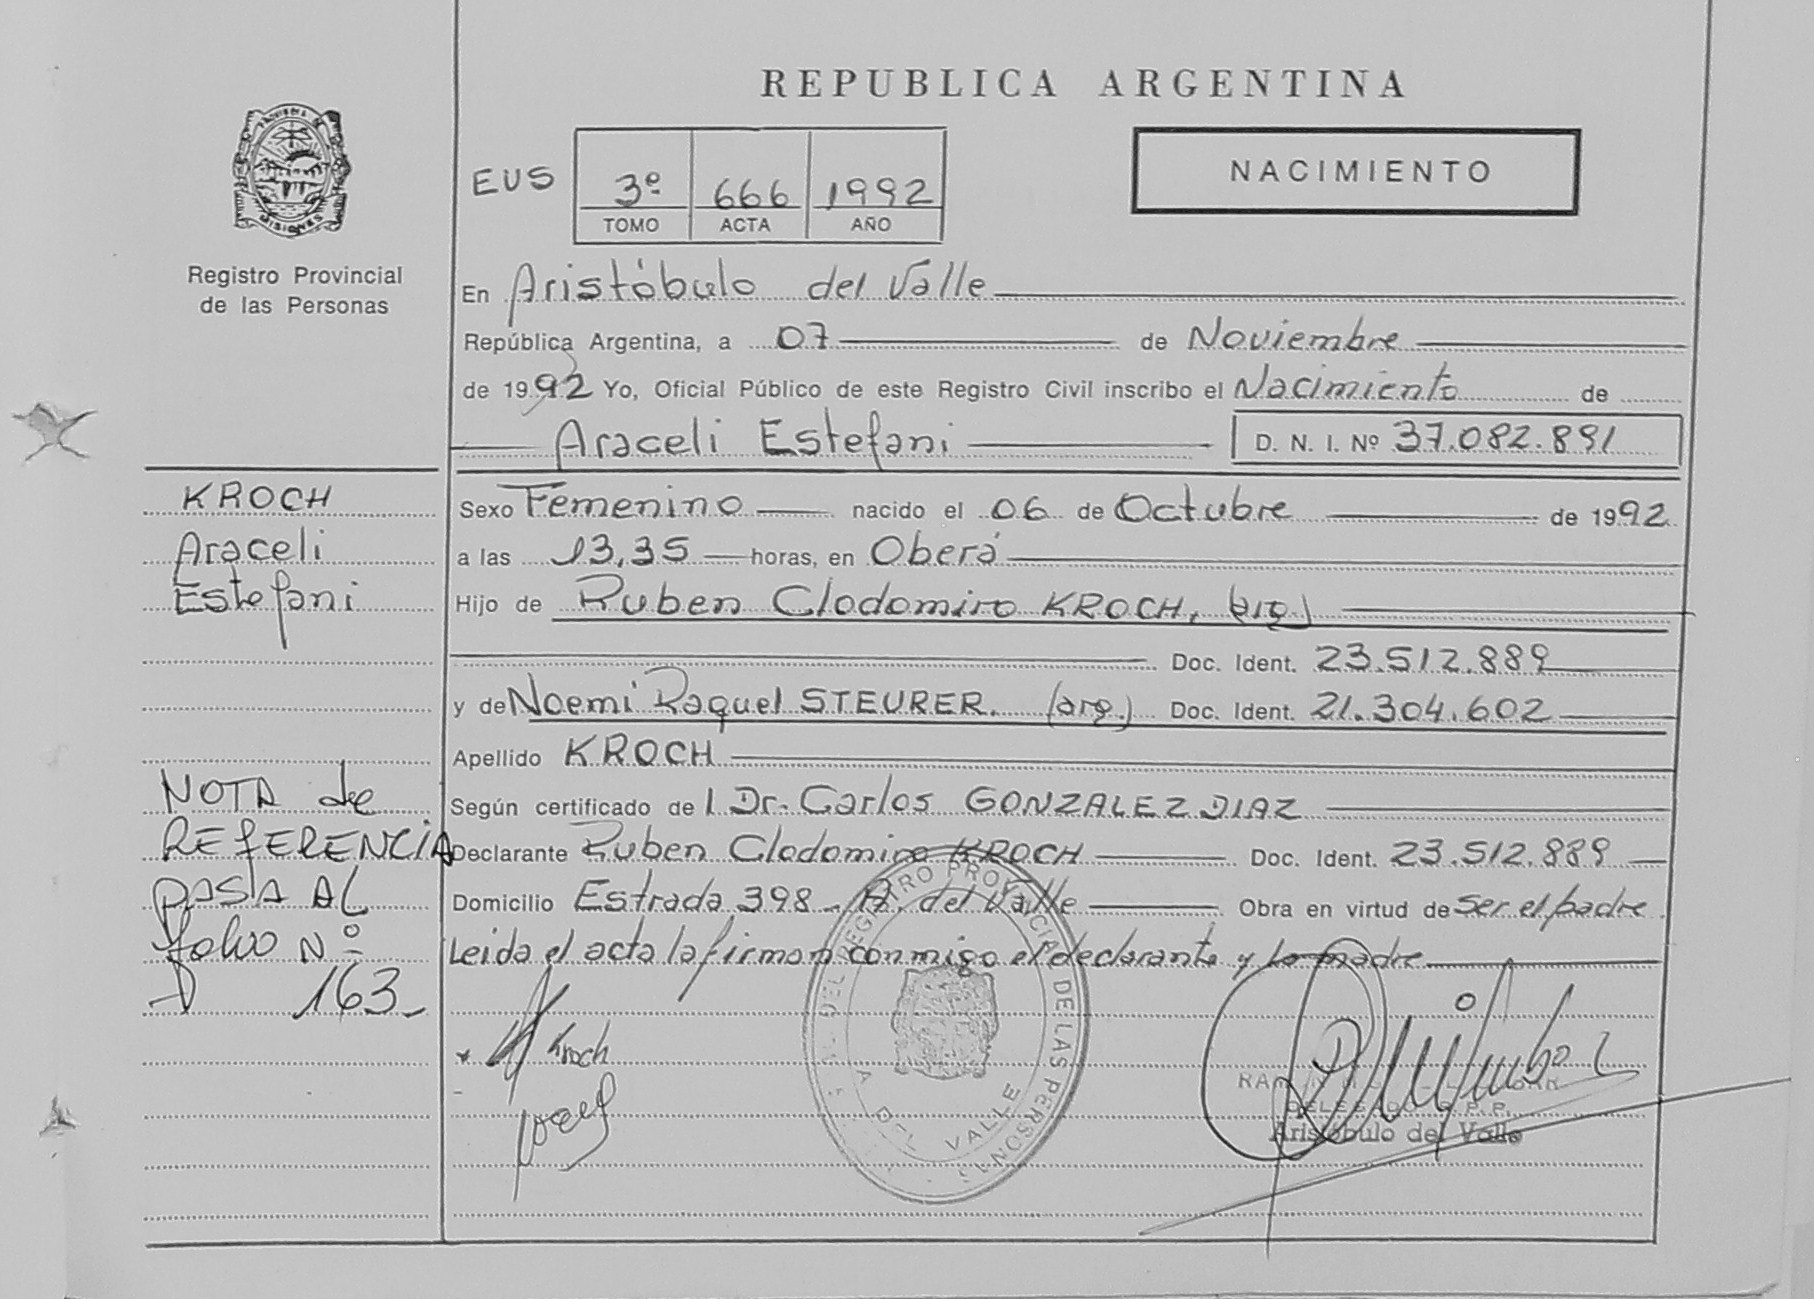 REPUBLICA ARGENTINA
PROVINCIA DE MISIONES
Registro Provincial
de las Personas
EUS
3º 666 1992
TOMO ACTA AÑO
NACIMIENTO
En Aristóbulo del Valle
República Argentina, a 07 de Noviembre
de 1992 Yo, Oficial Público de este Registro Civil inscribo el Nacimiento de
Araceli Estefani D. N. I. Nº 37.082.891
KROCH
Araceli
Estefani
Sexo Femenino nacido el 06 de Octubre de 1992
a las 13,35 horas, en Oberá
Hijo de Ruben Clodomiro KROCH, (arg.)
Doc. Ident. 23.512.889
y de Noemi Raquel STEURER. (arg.) Doc. Ident. 21.304.602
Apellido KROCH
Según certificado de l Dr. Carlos GONZALEZ DIAZ
Declarante Ruben Clodomiro KROCH Doc. Ident. 23.512.889
Domicilio Estrada 398 - A. del Valle Obra en virtud de ser el padre
Leida el acta la firman conmigo el declarante y la madre
NOTA de
REFERENCIA
PASA AL
folio Nº
163-
Kroch
DEL REGISTRO PROVINCIAL DE LAS PERSONAS
VALLE
DELEGADO R.P.P.
Aristóbulo del Valle